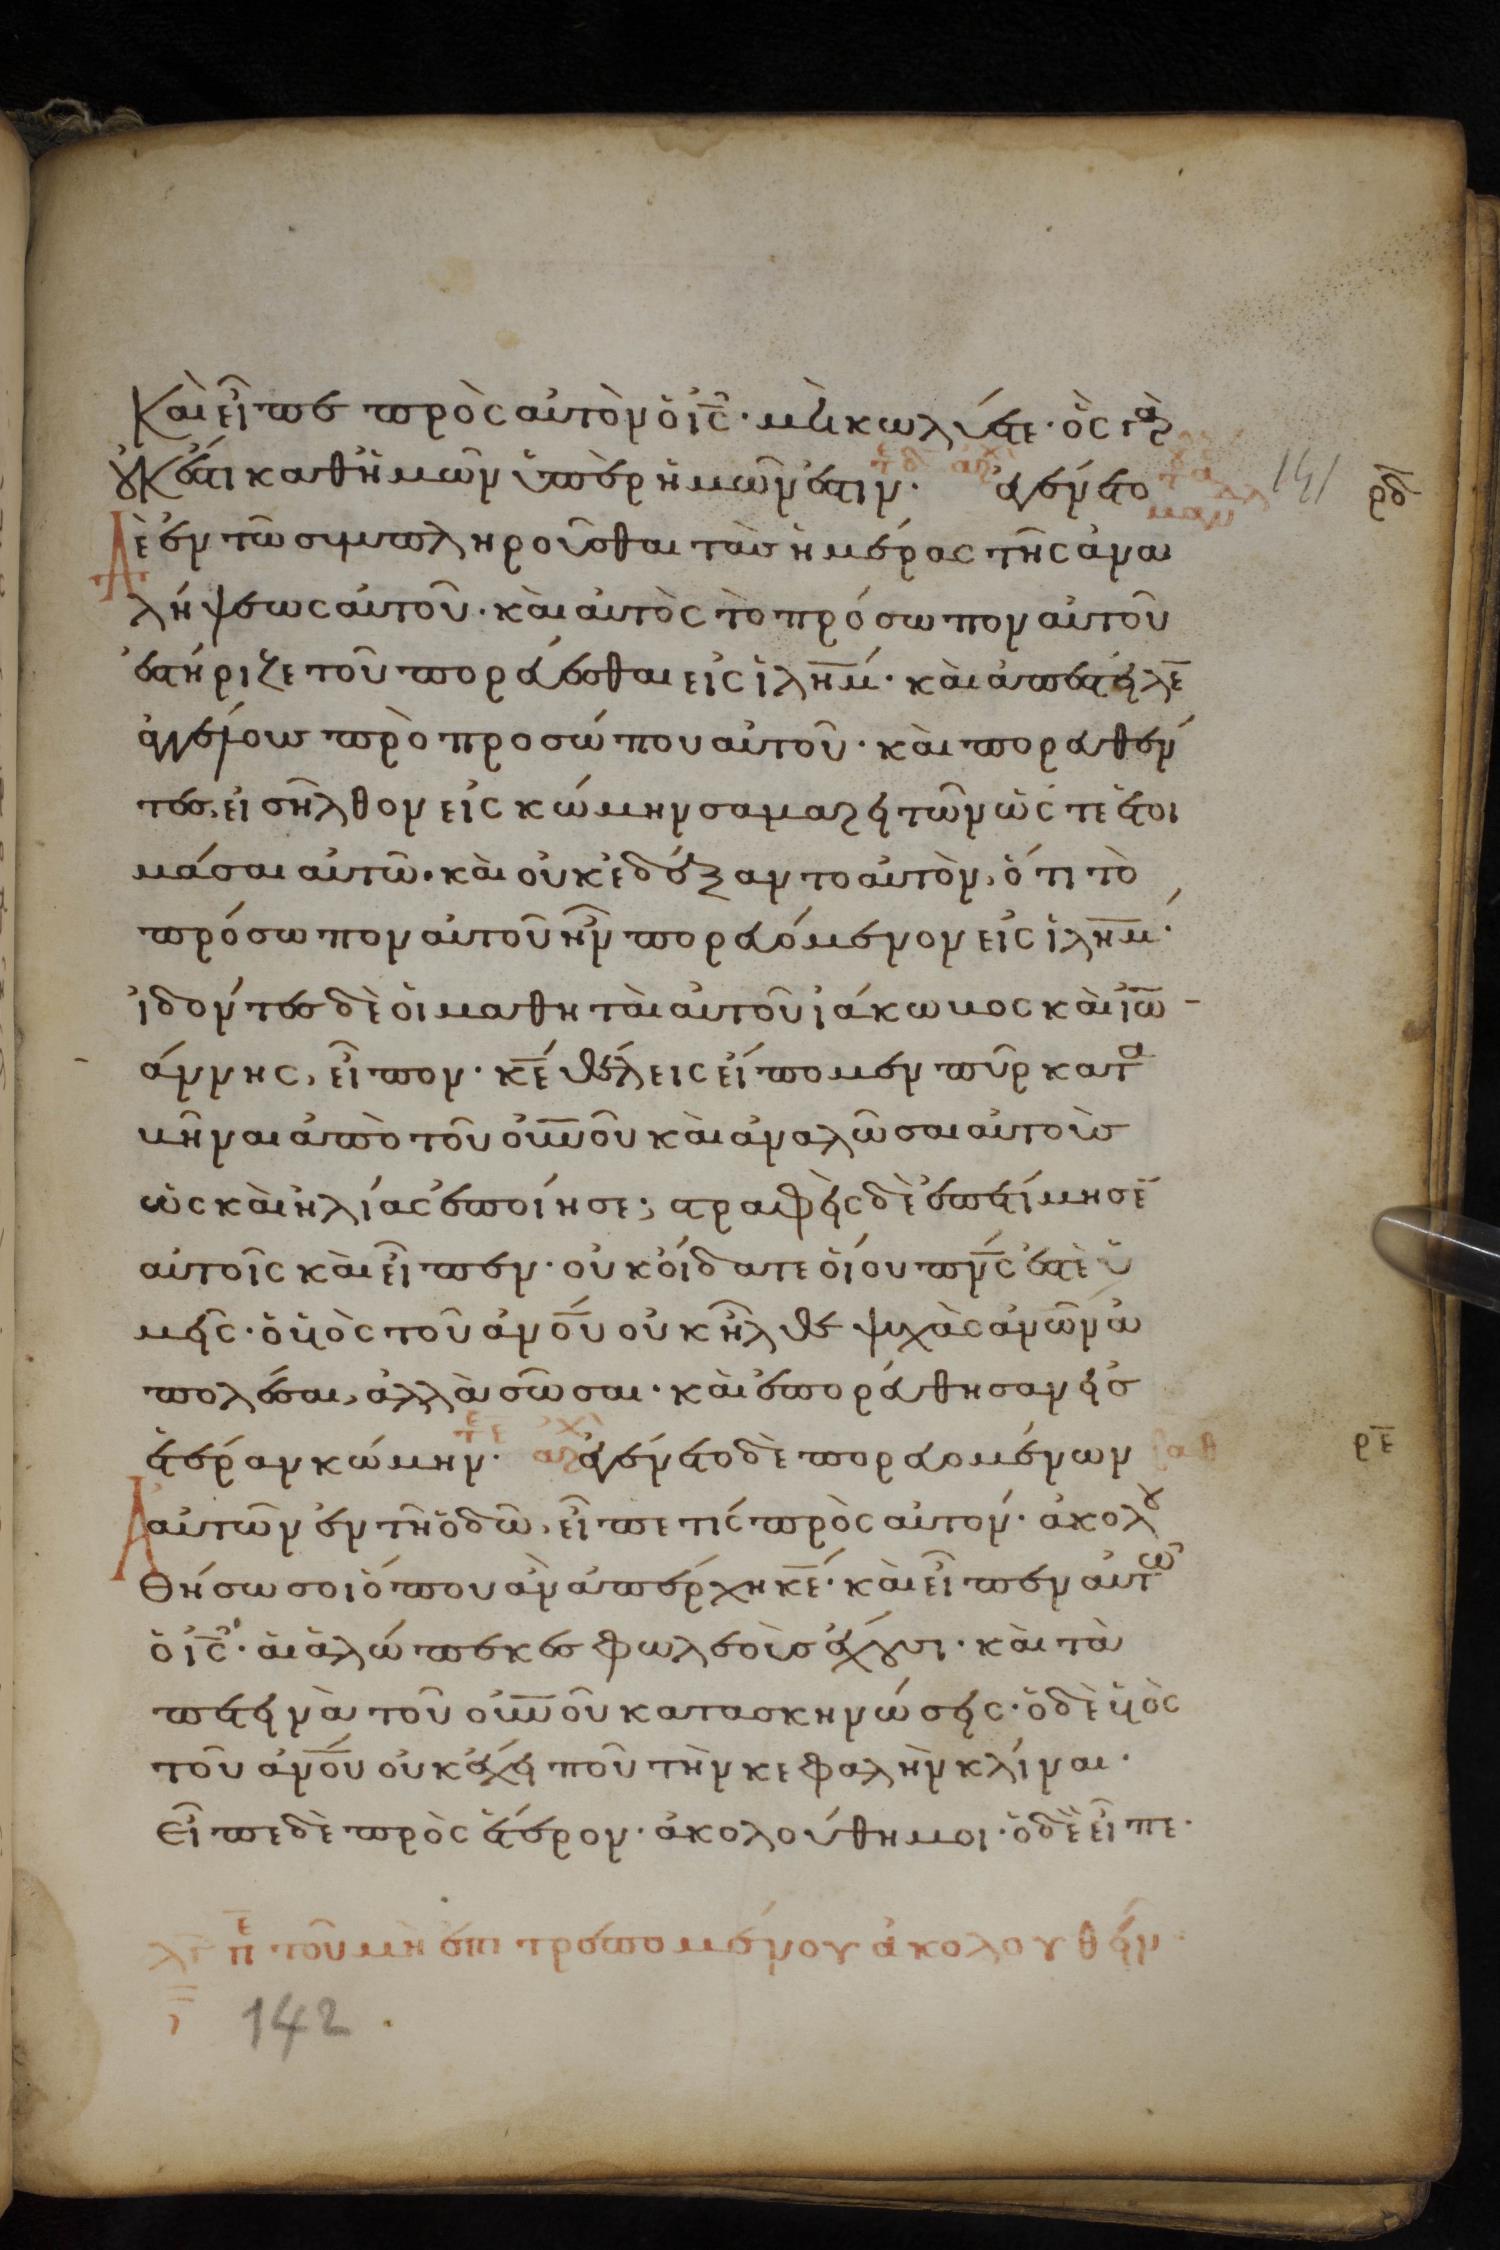 Καὶ εἶπε πρὸς αὐτὸν ὁ ις̅· μὴ κωλύετε· ὃς γὰρ
οὐκ ἔστι καθ' ἡμῶν ὑπὲρ ἡμῶν ἐστιν· ἐγένετο
141
ρδ
ὲ ἐν τῷ συμπληροῦσθαι τὰς ἡμέρας τῆς ἀνα
λήψεως αὐτοῦ· καὶ αὐτὸς τὸ πρόσωπον αὐτοῦ
ἐστήριξε τοῦ πορεύεσθαι εἰς ἰλη̅μ· καὶ ἀπέστειλε
ἀγγέλους πρὸ προσώπου αὐτοῦ· καὶ πορευθέν
τες, εἰσῆλθον εἰς κώμην σαμαρειτῶν ὥς τε ἑτοι
μάσαι αὐτῷ· καὶ οὐκ ἐδέξαντο αὐτὸν, ὅτι τὸ
πρόσωπον αὐτοῦ ἦν πορευόμενον εἰς ἰλη̅μ·
ἰδόντες δὲ οἱ μαθηταὶ αὐτοῦ ἰάκωβος καὶ ἰω
άννης, εἶπον· κ̅ε θέλεις εἴπομεν πῦρ κατα
βῆναι ἀπὸ τοῦ ου̅νοῦ καὶ ἀναλῶσαι αὐτοὺς
ὡς καὶ ἠλίας ἐποίησε; στραφεὶς δὲ ἐπετίμησε
αὐτοῖς καὶ εἶπεν· οὐκ οἴδατε οἵου πν̅ς ἐστὲ ὑ
μεῖς· ὁ υἱὸς τοῦ ἀν̅ου οὐκ ἦλθε ψυχὰς ἀν̅ων ἀ
πολέσαι, ἀλλὰ σῶσαι· καὶ ἐπορεύθησαν εἰς
ἑτέραν κώμην· ἐγένετο δὲ πορευομένων
ρε
Α αὐτῶν ἐν τῇ ὁδῷ, εἶπε τίς πρὸς αὐτον· ἀκολου
θήσω σοι ὅπου ἂν ἀπέρχη κ̅ε· καὶ εἶπεν αὐτῷ
ὁ ις̅· αἱ ἀλώπεκες φωλεοὺς ἔχουσι· καὶ τὰ
πετεινὰ τοῦ ου̅νοῦ κατασκηνώσεις· ὁ δὲ υἱὸς
τοῦ ἀν̅ου οὐκ ἔχει ποῦ τὴν κεφαλὴν κλίναι·
Εἶπε δὲ πρὸς ἕτερον· ἀκολούθη μοι· ὁ δὲ εἶπε·
π̅ε τοῦ μὴ ἐπιτρεπομένου ἀκολουθεῖν
142